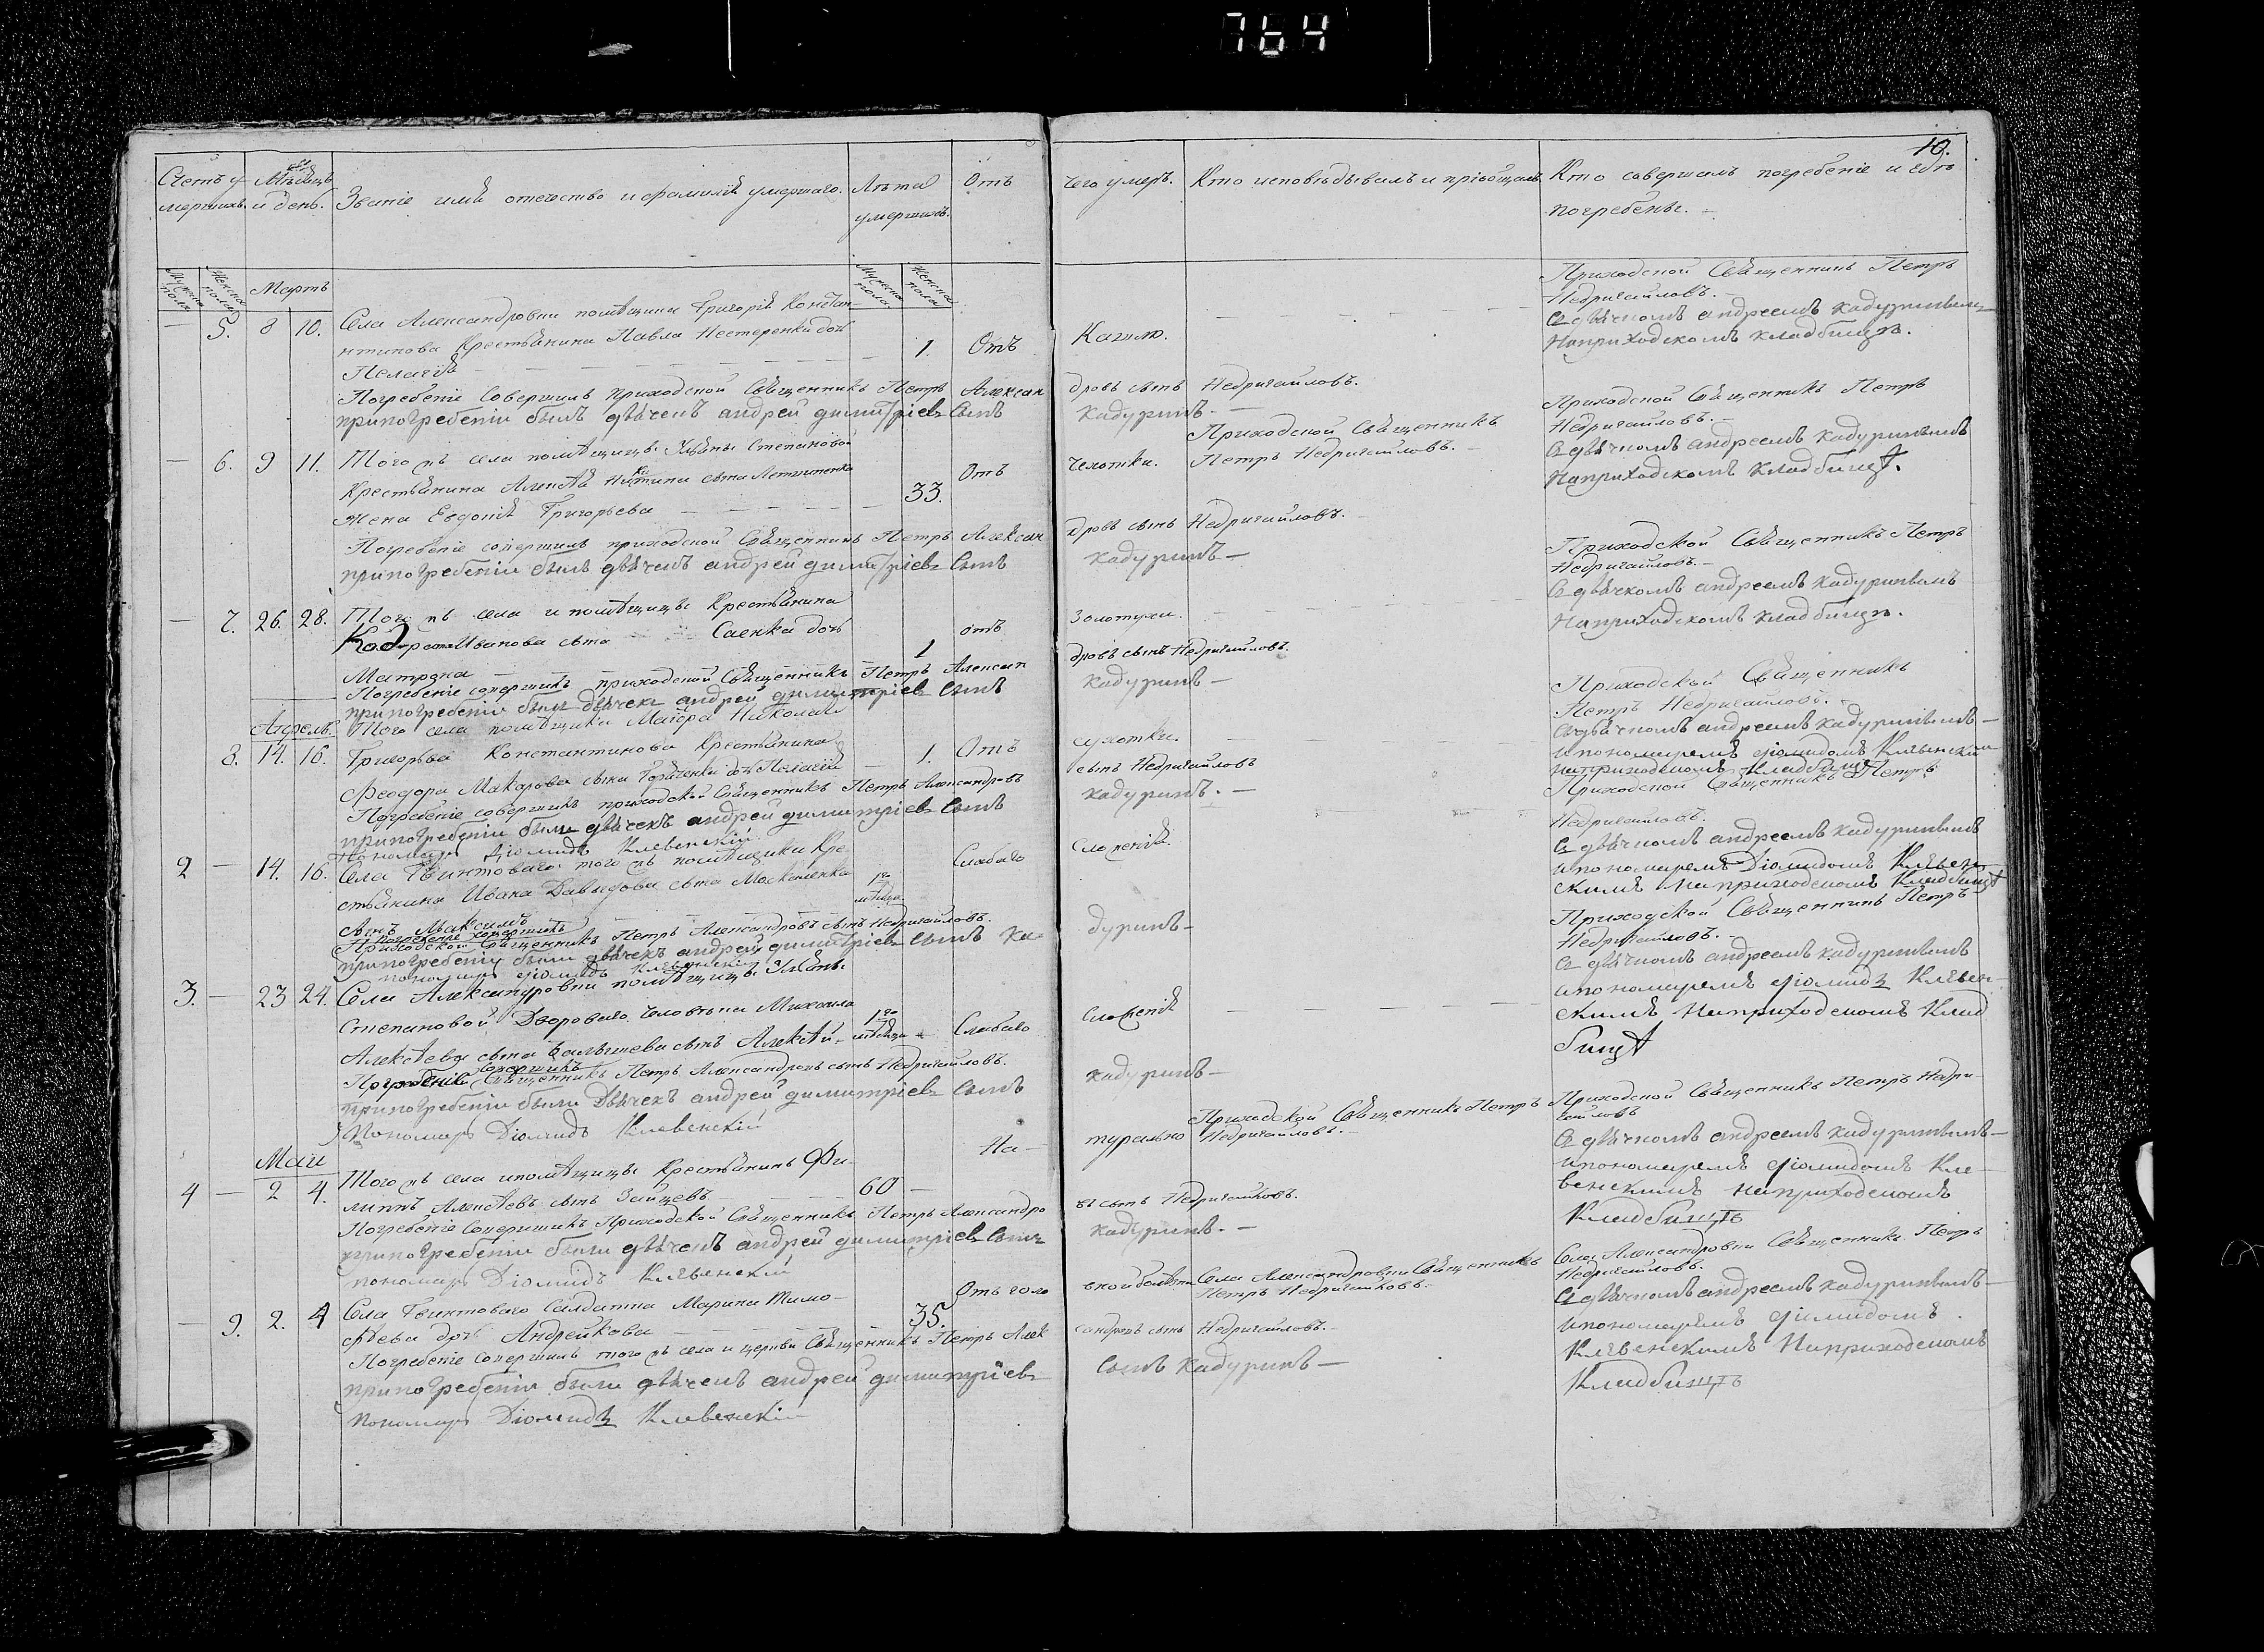 764
10.
Счетъ у- Мѣсяцъ Званіе имя отечество и фамилія умершаго. Лѣта Отъ чего умеръ. Кто исповѣдывалъ и пріобщалъ Кто совершалъ погребеніе и гдѣ
мершихъ. и день. умершихъ. погребены.
Мужска пола Женска пола Мартъ Мужска пола Женска пола
Приходской Священникъ Петръ
Недригайловъ.
5. 8 10. Села Александровки помѣщика Григорія Констан-
нтинова Крестьянина Павла Нестеренка дочь
Пелагія 1. Отъ Кашлю.
съ дьячкомъ андреемъ кадуринымъ
наприходскомъ кладбищѣ.
Погребеніе совершилъ приходской Священникъ Петръ Александровъ сынъ Недригайловъ.
припогребеніи былъ дьячекъ андрей димитріевъ сынъ кадуринъ
6. 9 11. Того жъ села помѣщицы Ульяны Степановой
Крестьянина Алексѣя Никитина сына
жена Евдокія Григорьева 33. Отъ чехотки.
Приходской Священникъ
Петръ Недригайловъ.
Приходской Священникъ Петръ
Недригайловъ.
съ дьячкомъ андреемъ кадуринымъ
наприходскомъ кладбищѣ.
Погребеніе совершилъ приходской Священникъ Петръ Александровъ сынъ Недригайловъ.
припогребеніи былъ дьячекъ андрей димитріевъ сынъ кадуринъ
7. 26. 28. Того жъ села и помѣщицы Крестьянина
Иванова сына Саенка дочь
Матрона 1 отъ Золотухи.
Приходской Священникъ Петръ
Недригайловъ.
съ дьячкомъ андреемъ кадуринымъ
наприходскомъ кладбищѣ.
Погребеніе совершилъ приходской Священникъ Петръ Александровъ сынъ Недригайловъ.
припогребеніи былъ дьячекъ андрей димитріевъ сынъ кадуринъ
Апрель.
8. 14. 16. Того села помѣщика Маіора Николая
Григорьева Константинова Крестьянина
Феодора Макарова сына дочь Пелагія 1. Отъ сухотки.
Приходской Священникъ
Петръ Недригайловъ.
съ дьячкомъ андреемъ кадуринымъ
ипономаремъ діомидомъ Клевенскимъ
наприходскомъ кладбищѣ
Погребеніе совершилъ приходской Священникъ Петръ Александровъ сынъ Недригайловъ
припогребеніи были дьячекъ андрей димитріевъ сынъ кадуринъ.
Пономарь Діомидъ Клевенскій
2 14. 16. Села Гвинтоваго того жъ помѣщика Кре-
стьянина Ивана Давыдова сына Москаленка
сынъ Максимъ 1го мѣсяца Слабаго сложенія.
Приходской Священникъ Петръ
Недригайловъ.
съ дьячкомъ андреемъ кадуринымъ
ипономаремъ Діомидомъ Клевен-
скимъ наприходскомъ кладбищѣ
Погребеніе совершилъ
Приходской Священникъ Петръ Александровъ сынъ Недригайловъ.
припогребеніи были дьячекъ андрей димитріевъ сынъ кадуринъ
пономарь діомидъ Клевенскій
3. 23 24. Села Александровки помѣщицы Ульяны
Степановой Двороваго человѣка Михаила
Алексѣева сына сынъ Алексѣй 1го мѣсяца Слабаго сложенія
Приходской Священникъ Петръ
Недригайловъ.
съ дьячкомъ андреемъ кадуринымъ
ипономаремъ діомидъ Клевен-
скимъ наприходскомъ клад
бищѣ
Погребеніе совершилъ Священникъ Петръ Александровъ сынъ Недригайловъ.
припогребеніи были дьячекъ андрей димитріевъ сынъ кадуринъ
Пономарь Діомидъ Клевенскій
Маіи
4 2 4. Того жъ села ипомѣщицы Крестьянинъ Фи-
липпъ Алексѣевъ сынъ Зайцевъ 60 На-турально
Приходской Священникъ Петръ
Недригайловъ.
Приходской Священникъ Петръ Недри-
гайловъ
съ дьячкомъ андреемъ кадуринымъ
ипономаремъ діомидомъ Кле-
венскимъ наприходскомъ
кладбищѣ
Погребеніе совершилъ Приходской Священникъ Петръ Александровъ сынъ Недригайловъ.
припогребеніи были дьячекъ андрей димитріевъ сынъ кадуринъ.
пономарь Діомидъ Клевенскій
9. 2. 4 Села Гвинтоваго Салдатка Марина Тимо-
фѣева дочь Андрейкова 35. Отъ головной болѣзни
Села Александровки Священникъ
Петръ Недригайловъ.
Села Александровки Священникъ Петръ
Недригайловъ.
съ дьячкомъ андреемъ кадуринымъ
ипономаремъ діомидомъ
Клевенскимъ наприходскомъ
кладбищѣ
Погребеніе совершилъ того жъ села и церкви Священникъ Петръ Александровъ сынъ Недригайловъ.
припогребеніи были дьячекъ андрей димитріевъ сынъ кадуринъ
пономарь Діомидъ Клевенскій